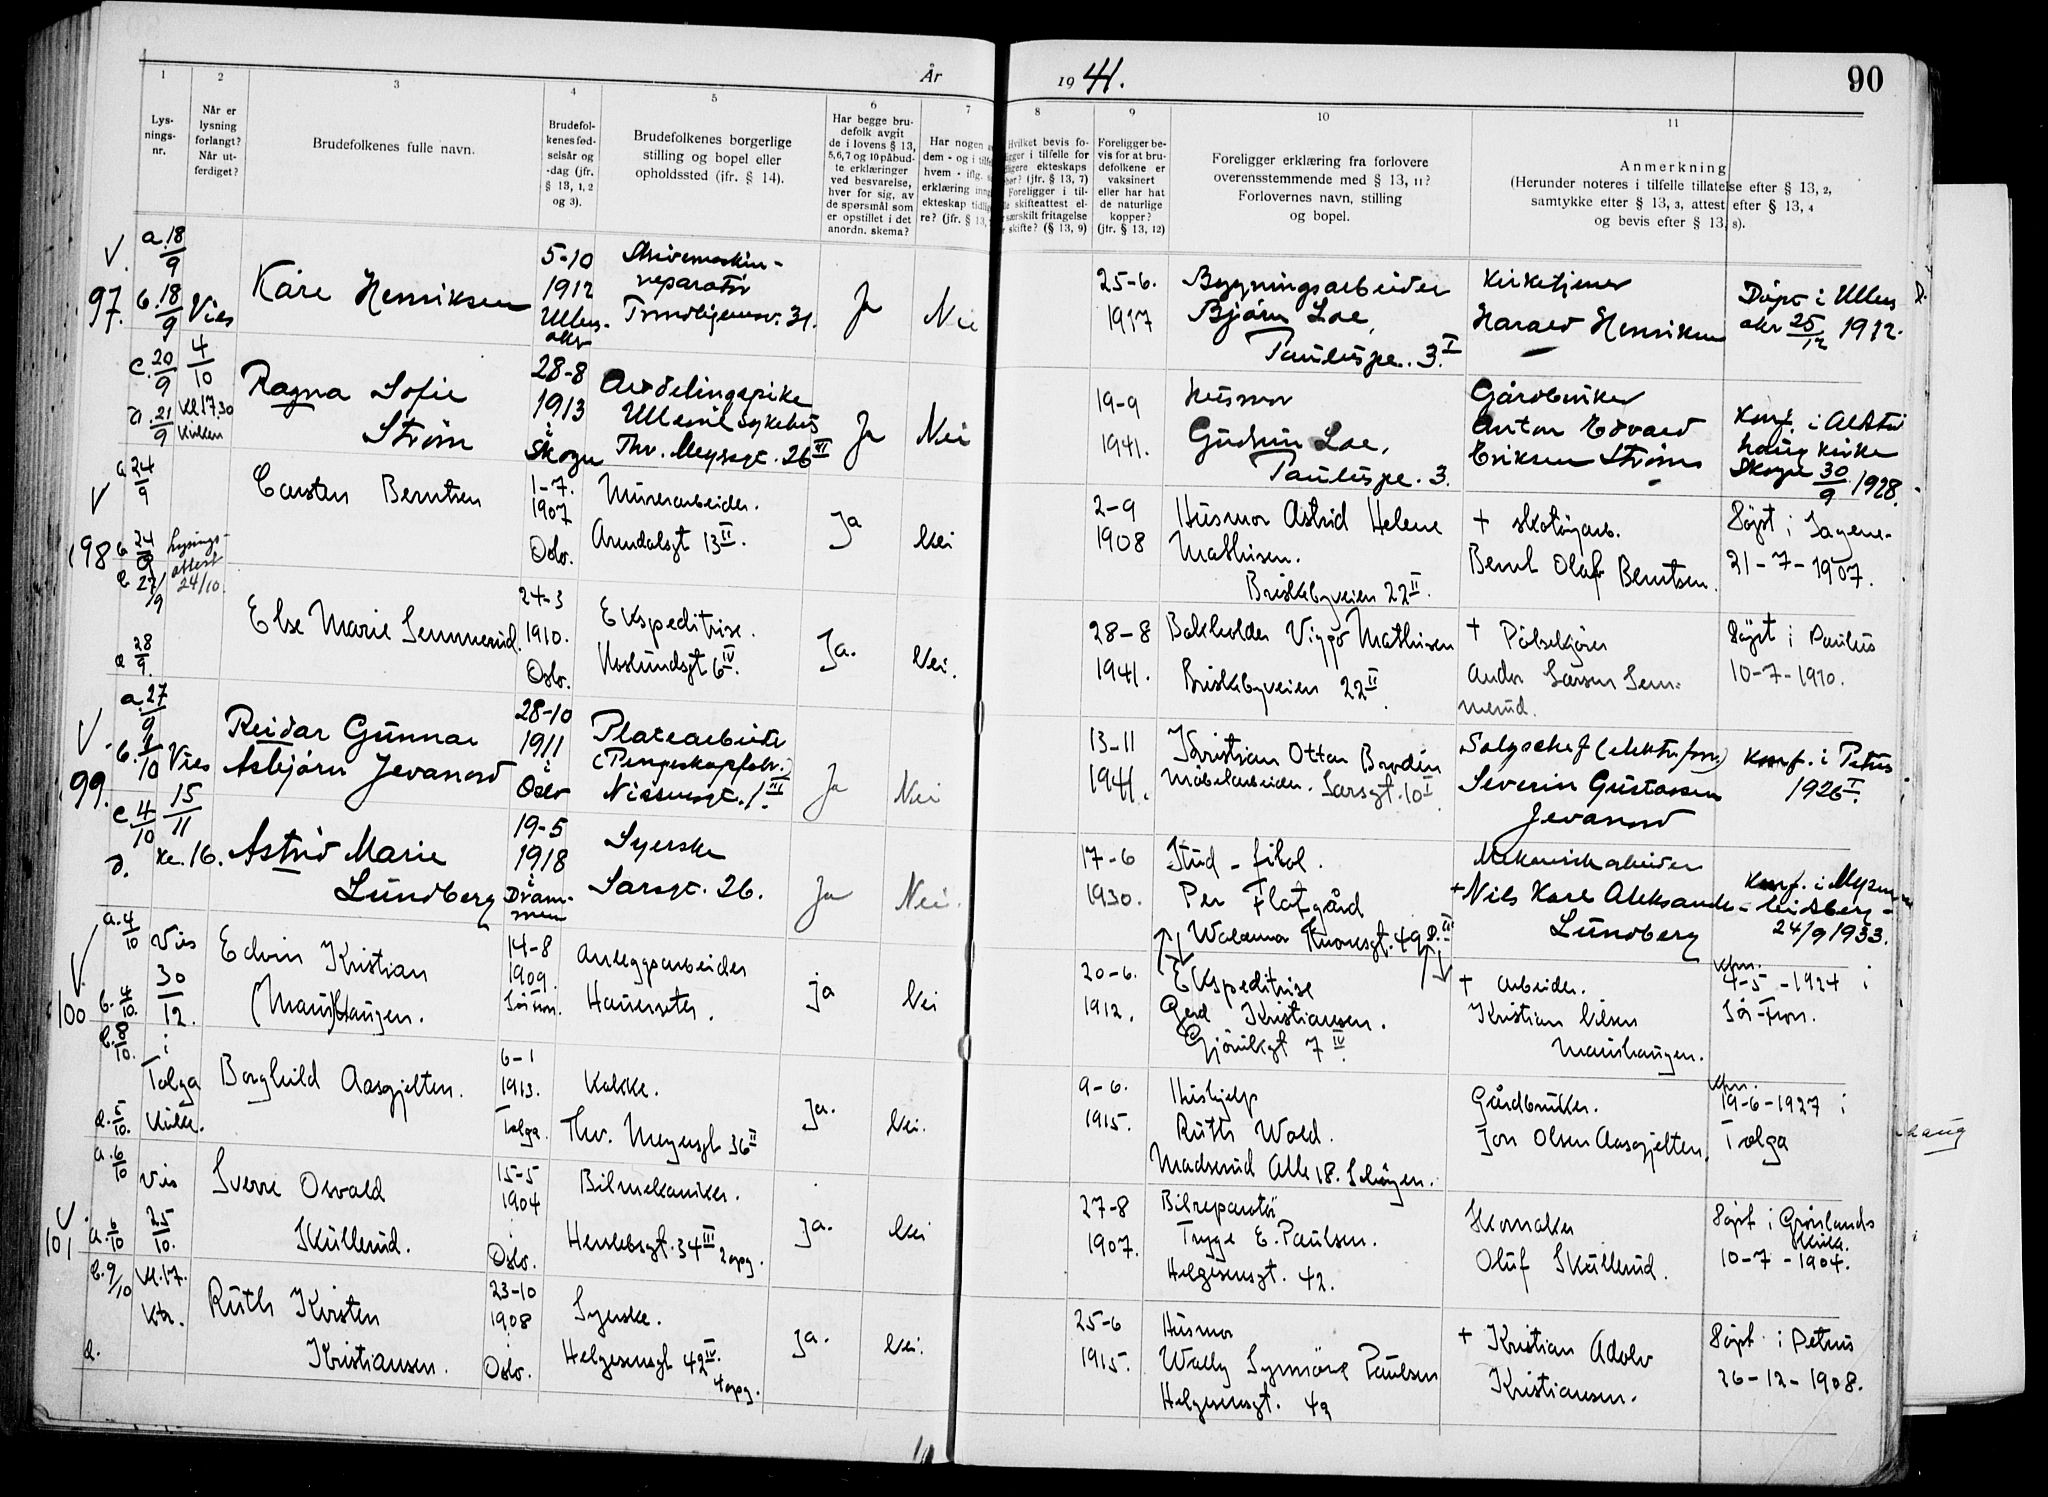 År 1941.
90
1
2
3
4
5
6
7
8
9
10
11
Lys-
nings-
nr.
Når er
lysning
forlangt?
Når ut-
ferdiget?
Brudefolkenes fulle navn.
Brudefol-
kenes fød-
selsår og
-dag (jfr.
§ 13, 1, 2
og 3).
Brudefolkenes borgerlige
stilling og bopel eller
opholdssted (jfr. § 14).
Har begge bru-
defolk avgit
de i lovens § 13,
5,6,7 og 10 påbud-
te erklæringer
ved besvarelse,
hver for sig, av
de spørsmål som
er opstillet i det
anordn. skema?
Har nogen
dem - og i
hvem - iflg.
erklæring
ekteskap
re? (jfr. § 13,
Hvilket bevis fo-
i tilfelle for
ekteskaps
(jfr. § 13, 7)
Foreligger i til-
skifteattest el-
særskilt fritagelse
skifte? (§ 13, 9)
Foreligger be-
vis for at bru-
defolkene er
vaksinert
eller har hat
de naturlige
kopper?
(jfr. § 13, 12)
Foreligger erklæring fra forlovere
overensstemmende med § 13, 11?
Forlovernes navn, stilling
og bopel.
Anmerkning
(Herunder noteres i tilfelle tillatelse efter § 13, 2,
samtykke efter § 13, 3, attest efter § 13, 4
og bevis efter § 13, 8).
97.
a. 18/9
b. 18/9
c. 20/9
d. 21/9
Vies
4/10
Kl 17.30
Kirken
Kåre Henriksen
5-10
1912
Ullens-
aker
Skrivemaskin-
reparatør
Trondhjemsv. 31.
Ja
Nei
25-6.
1917
Bygningsarbeider
Bjørn Loe,
Paulus pl. 3 I
Kirketjener
Harald Henriksen
Døpt i Ullens
aker 25/12 1912.
Ragna Sofie
Strøm
28-8
1913
i
Skogn
Avdelingspike
Ullevål sykehus
Thv. Meyersgt. 26 III
Ja
Nei
19-9
1941.
Husmor
Gudrun Loe,
Paulus pl. 3.
Gårdbruker
Anton Edvard
Eriksen Strøm
Konf. i Alstad
haug kirke
Skogn 30/9 1928.
98
a 24/9
b 24/9
c 27/9
d 28/9.
Lysings-
attest
24/10.
Carsten Berntsen
1-7.
1907
Oslo.
Murerarbeider.
Arendalsgt 13 II.
Ja
Nei
2-9
1908
Husmor Astrid Helene
Mathisen.
Briskebyveien 22 II.
+ skotøyarb.
Bernt Olaf Berntsen.
Døpt i Sagene.
21-7-1907.
Else Marie Semmerud.
24-3
1910.
Oslo.
Ekspeditrise.
6 IV.
Ja.
Nei.
28-8
1941.
Bokholder Viggo Mathisen
Briskebyveien 22 II.
+ Pølsekjører
Anders Larsen Sem-
merud.
Døpt i Paulus
10-7-1910.
99.
a. 27/9
b. 1/10
c. 4/10
d.
Vies
15/11
Kl. 16.
Reidar Gunnar
Asbjørn Jevanord
28-10
1911
i
Oslo
Platearbeider
(Pengeskapfabr.)
Nissensgt. 1 III
Ja
Nei
13-11
1941.
Kristian Ottar Brodin
Møbelarbeider. Sarsgt. 10 I
Salgschef (elektr. forr.)
Severin Gustavsen
Jevanord
Konf. i Petrus
1926 I.
Astrid Marie
Lundberg
19-5
1918
i
Dram-
men
Syerske
Sarsgt. 26.
Ja
Nei.
17-6
1930.
Stud - filol.
Per Flatgård
Waldemar Thranesgt. 49 D. III
Mekanisk arbeider
+ Nils Karl Aleksander
Lundberg
Konf. i Mysen
Eidsberg -
24/9 1933.
100
a. 4/10
b. 4/10.
c. 8/10.
d. 5/10.
Vies
30/12.
i
Tolga
Kirke.
Edvin Kristian
(Maus)haugen.
14-8
1909.
Sør Fron.
Anleggsarbeider
Haverseter.
Ja
Nei
20-6.
1912.
Ekspeditrise
Gerd Kristiansen.
Gjøvikgt 7 IV.
+ arbeider.
Kristian Nilsen
Maushaugen.
kfm.
4-5-1924 i
Sør-Fron.
Borghild Aasgjelten.
6-1
1913.
Tolga.
Kokke.
Thv. Meyersgt 36 II
Ja.
Nei.
9-6.
1915.
Hushjelp
Ruth Wold.
Madserud Alle 18. Skøyen.
Gårdbruker.
Jon Olsen Aasgjelten.
kfm.
19-6-1927 i
Tolga
haug
101
a. 6/10
a. 6/10
c. 9/10
d.
Vies
25/10.
Kl. 17.
Ktr.
Sverre Osvald
Skullerud.
15-5
1904
i
Oslo.
Bilmekaniker.
Herslebsgt. 34 III 2 opg.
Ja.
Nei
27-8
1907.
Bilreparatør
Trygve E. Paulsen.
Helgesensgt. 42.
Skomaker
Oluf Skullerud.
Døpt i Grønlands
Kirke.
10-7-1904.
Ruth Kirsten
Kristiansen.
23-10
1908
i
Oslo.
Syerske.
Helgesensgt 42 IV.
4 opg.
Ja.
Nei.
25-6
1915.
Husmor
Wally Synnøve Paulsen
Helgesensgt. 42
+ Kristian Adolv
Kristiansen.
Døpt i Petrus
26-12-1908.